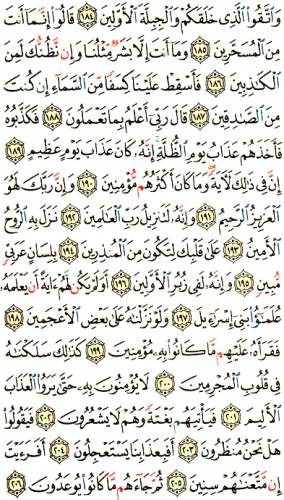 وَٱتَّقُوا۟ ٱلَّذِى خَلَقَكُمْ وَٱلْجِبِلَّةَ ٱلْأَوَّلِينَ ١٨٤ قَالُوٓا۟ إِنَّمَآ أَنتَ
مِنَ ٱلْمُسَحَّرِينَ ١٨٥ وَمَآ أَنتَ إِلَّا بَشَرٌ مِّثْلُنَا وَإِن نَّظُنُّكَ لَمِنَ
ٱلْكَٰذِبِينَ ١٨٦ فَأَسْقِطْ عَلَيْنَا كِسَفًا مِّنَ ٱلسَّمَآءِ إِن كُنتَ
مِنَ ٱلصَّٰدِقِينَ ١٨٧ قَالَ رَبِّىٓ أَعْلَمُ بِمَا تَعْمَلُونَ ١٨٨ فَكَذَّبُوهُ
فَأَخَذَهُمْ عَذَابُ يَوْمِ ٱلظُّلَّةِ إِنَّهُۥ كَانَ عَذَابَ يَوْمٍ عَظِيمٍ ١٨٩
إِنَّ فِى ذَٰلِكَ لَءَايَةً وَمَا كَانَ أَكْثَرُهُم مُّؤْمِنِينَ ١٩٠ وَإِنَّ رَبَّكَ لَهُوَ
ٱلْعَزِيزُ ٱلرَّحِيمُ ١٩١ وَإِنَّهُۥ لَتَنزِيلُ رَبِّ ٱلْعَٰلَمِينَ ١٩٢ نَزَلَ بِهِ ٱلرُّوحُ
ٱلْأَمِينُ ١٩٣ عَلَىٰ قَلْبِكَ لِتَكُونَ مِنَ ٱلْمُنذِرِينَ ١٩٤ بِلِسَانٍ عَرَبِىٍّ
مُّبِينٍ ١٩٥ وَإِنَّهُۥ لَفِى زُبُرِ ٱلْأَوَّلِينَ ١٩٦ أَوَلَمْ يَكُن لَّهُمْ ءَايَةً أَن يَعْلَمَهُۥ
عُلَمَٰٓؤُا۟ بَنِىٓ إِسْرَٰٓءِيلَ ١٩٧ وَلَوْ نَزَّلْنَٰهُ عَلَىٰ بَعْضِ ٱلْأَعْجَمِينَ ١٩٨
فَقَرَأَهُۥ عَلَيْهِم مَّا كَانُوا۟ بِهِۦ مُؤْمِنِينَ ١٩٩ كَذَٰلِكَ سَلَكْنَٰهُ
فِى قُلُوبِ ٱلْمُجْرِمِينَ ٢٠٠ لَا يُؤْمِنُونَ بِهِۦ حَتَّىٰ يَرَوُا۟ ٱلْعَذَابَ
ٱلْأَلِيمَ ٢٠١ فَيَأْتِيَهُم بَغْتَةً وَهُمْ لَا يَشْعُرُونَ ٢٠٢ فَيَقُولُوا۟
هَلْ نَحْنُ مُنظَرُونَ ٢٠٣ أَفَبِعَذَابِنَا يَسْتَعْجِلُونَ ٢٠٤ أَفَرَءَيْتَ
إِن مَّتَّعْنَٰهُمْ سِنِينَ ٢٠٥ ثُمَّ جَآءَهُم مَّا كَانُوا۟ يُوعَدُونَ ٢٠٦